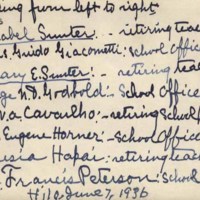 ing from left to right
abel Sunter - retiring teac
s. Guido Giacometti: School Offic
ary E. Sunter - retiring teac
ge N. D. Godbold: School Office
v. a. Cavaulho; - retiring School
Eugene Horner - School Offic
usia Hapai: retiring teach
Francis Peterson: School
Hilo June 7, 1936